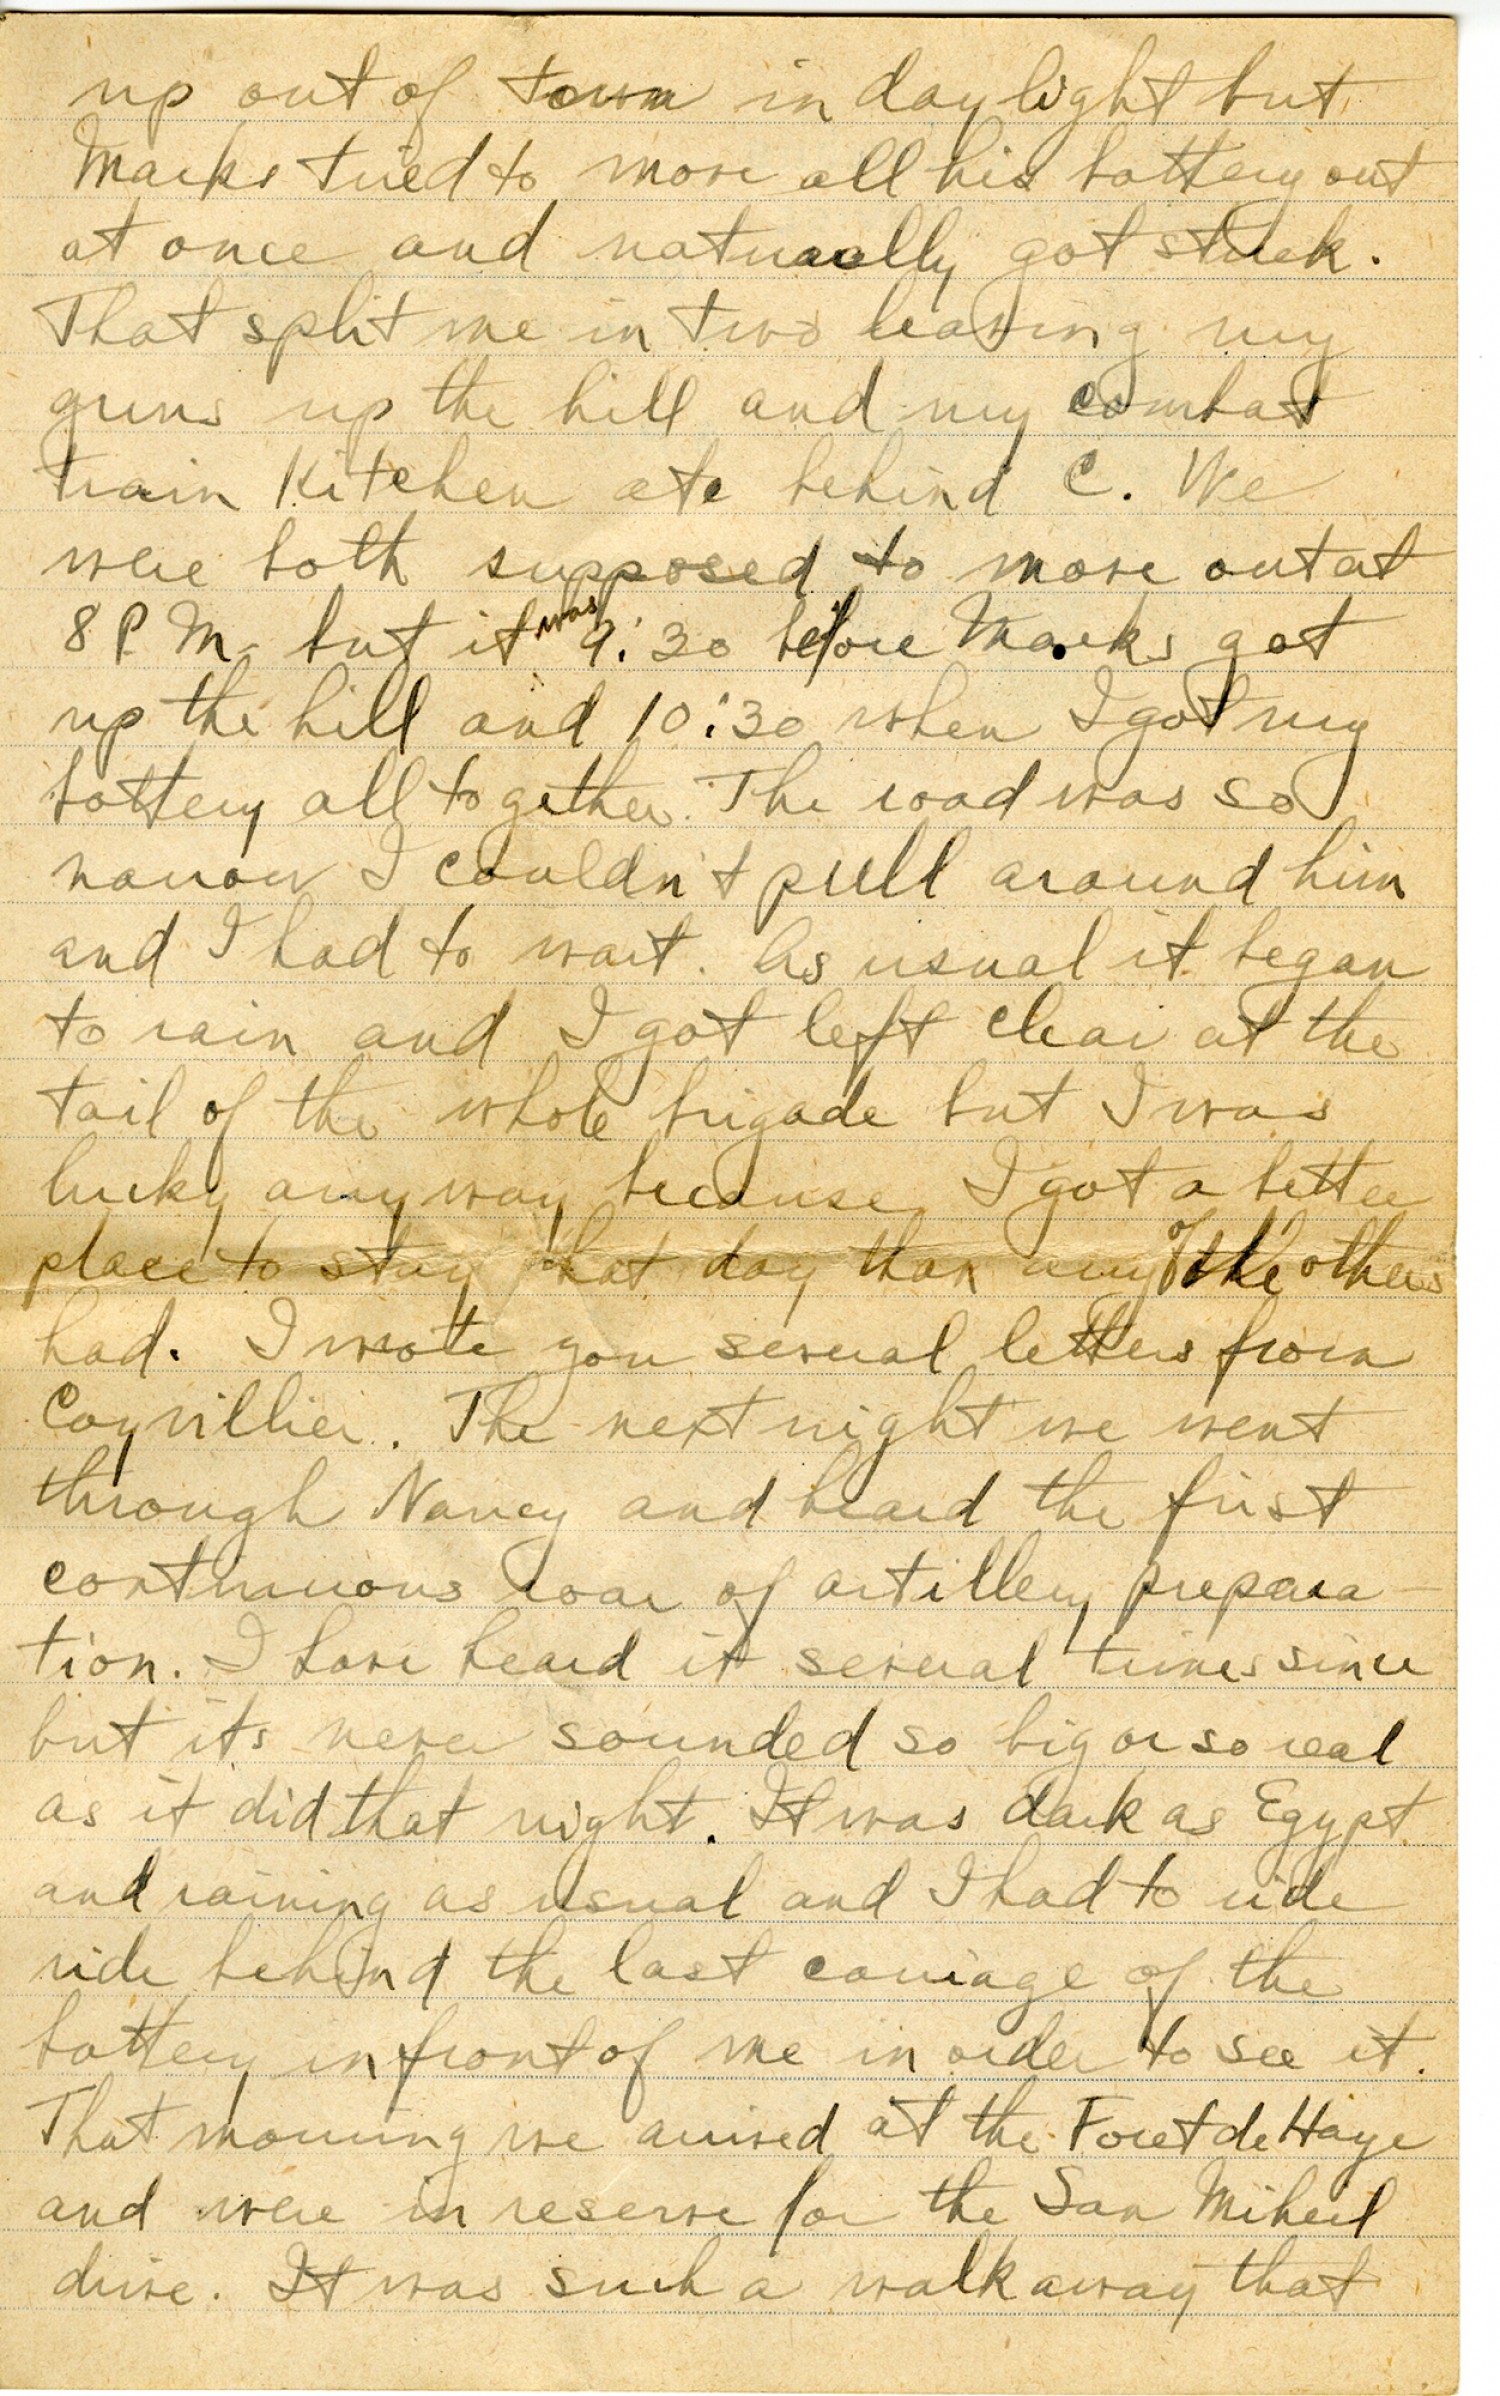 up out of town in daylight but
Marks tried to move all his battery out
at once and natuaally got stuck.
That split me in two leaving my
guns up the hill and my combat
train Kitchen etc behind C. We
were both supposed to move out at
8 P.M. but it was 9:30 before Marks got
up the hill and 10:30 when I got my
battery all together. The road was so
narrow I couldn't pull around him
and I had to wait. As usual it began
to rain and I got left clear at the
tail of the whole brigade but I was
lucky anyway because I got a better
place to stay that day than any of the others
had. I wrote you several letters from
Coyvillier. The next night we went
through Nancy and heard the first
continuous roar of artillery prepara-
tion. I have heard it several times since
but its never sounded so big or so real
as it did that night. It was dark as Egypt
and raining as usual and I had to ride
ride behind the last carriage of the
battery in front of me in order to see it.
That morning we arrived at the Foret de Haye
and were in reserve for the San Miheil
drive. It was such a walk away that